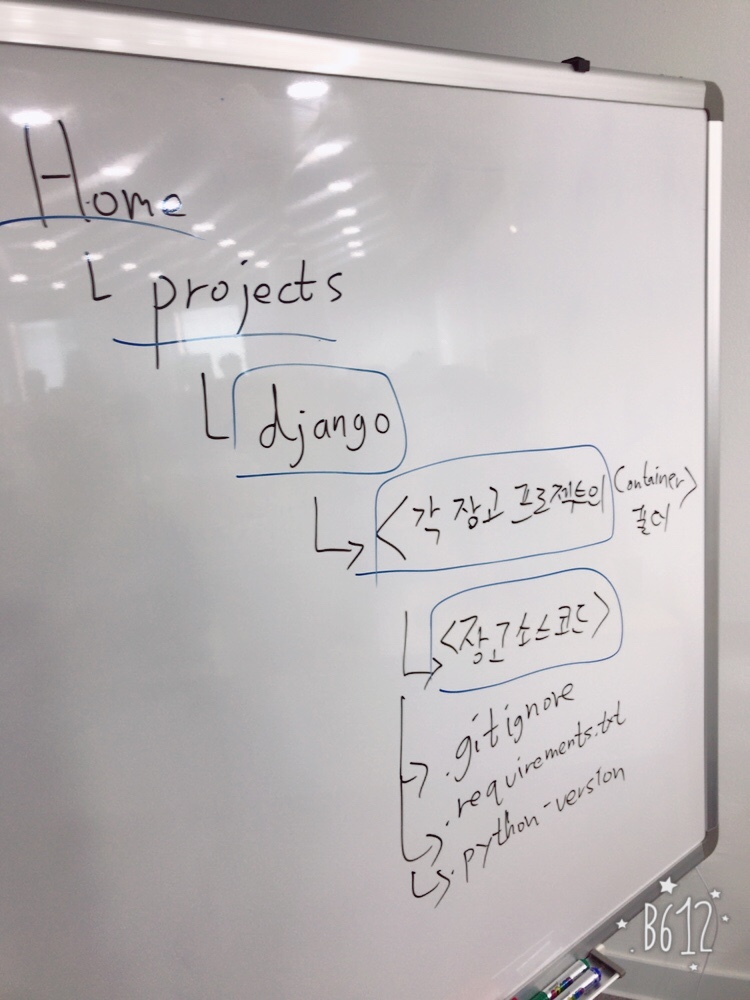 Home
└ projects
└ django
└> <각 장고 프로젝트의 Container>
폴더
└> <장고소스코드>
.gitignore
.requirements.txt
.python-version
B612